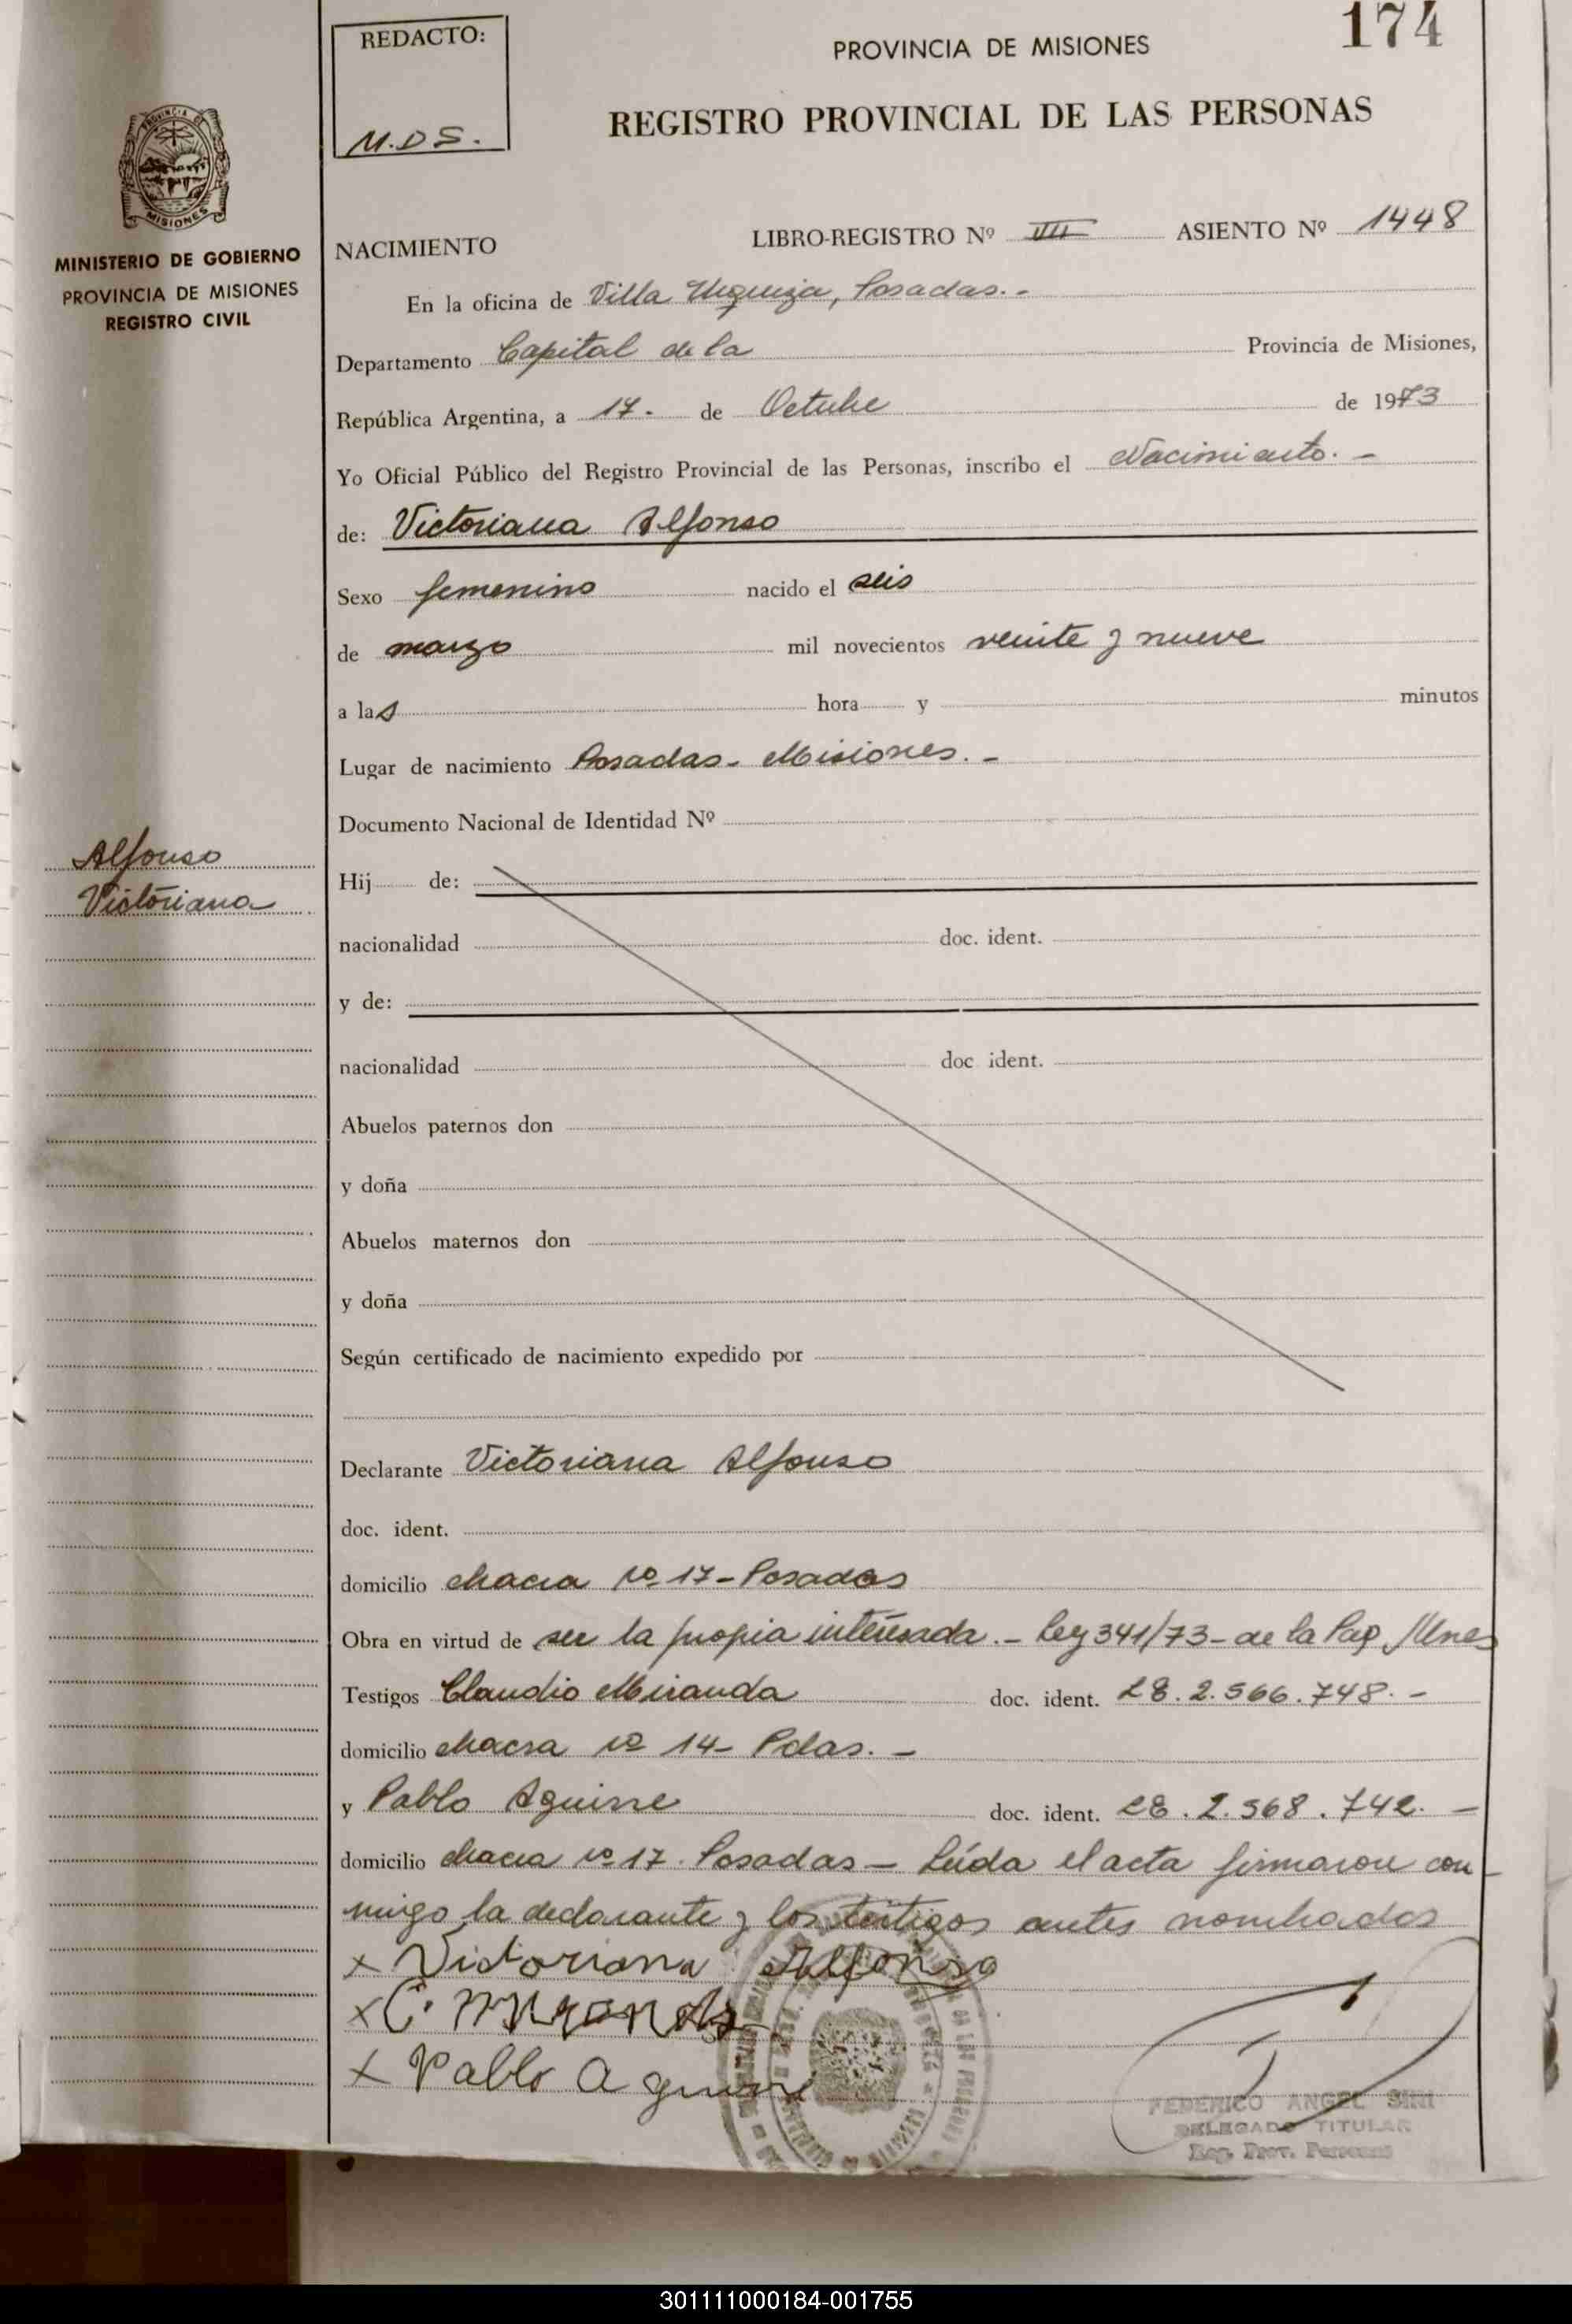 174
REDACTO:
M.D.S.
PROVINCIA DE MISIONES
REGISTRO PROVINCIAL DE LAS PERSONAS
PROVINCIA DE
MISIONES
MINISTERIO DE GOBIERNO
PROVINCIA DE MISIONES
REGISTRO CIVIL
NACIMIENTO LIBRO-REGISTRO Nº VII ASIENTO Nº 1448
En la oficina de Villa Urquiza, Posadas.-
Departamento Capital de la Provincia de Misiones,
República Argentina, a 17. de Octubre de 1973
Yo Oficial Público del Registro Provincial de las Personas, inscribo el Nacimiento.-
de: Victoriana Alfonso
Sexo femenino nacido el seis
de marzo mil novecientos veinte y nueve
a las hora y minutos
Lugar de nacimiento Posadas- Misiones.-
Documento Nacional de Identidad Nº
Alfonso
Victoriana
Hij de:
nacionalidad doc. ident.
y de:
nacionalidad doc ident.
Abuelos paternos don
y doña
Abuelos maternos don
y doña
Según certificado de nacimiento expedido por
Declarante Victoriana Alfonso
doc. ident.
domicilio chacra nº 17-Posadas
Obra en virtud de ser la propia interesada.- Ley 341/73- de la Mnes
Testigos Claudio Miranda doc. ident. 2.566.748.-
domicilio chacra nº 14- Pdas.-
y Pablo Aguirre doc. ident. 2.568.742.-
domicilio chacra nº 17. Posadas- Leída el acta firmaron con
migo la declarante y los testigos antes nombrados
x Victoriana Alfonso
x C. Miranda
x Pablo Aguirre
FEDERICO ANGEL SINI
DELEGADO TITULAR
Reg. Prov. Personas
301111000184-001755